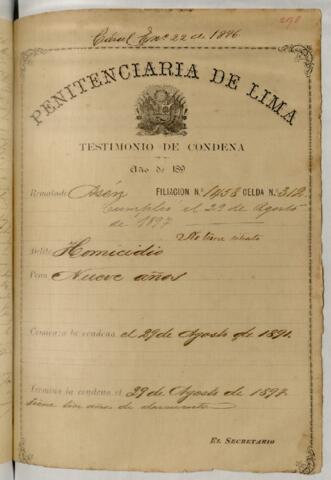 Carcel En.º 22 de 1896
298
PENITENCIARIA DE LIMA
TESTIMONIO DE CONDENA
Año de 189
Rematado Asén FILIACION N.º 1458 CELDA N.º 312
Cumplio el 29 de Agosto
de 1897
No tiene retrato
Delito Homicidio
Pena Nueve años
Comienza la condena el 29 de Agosto de 1891.
Termina la condena el 29 de Agosto de 1897.
tiene tres años de descuento
EL SECRETARIO